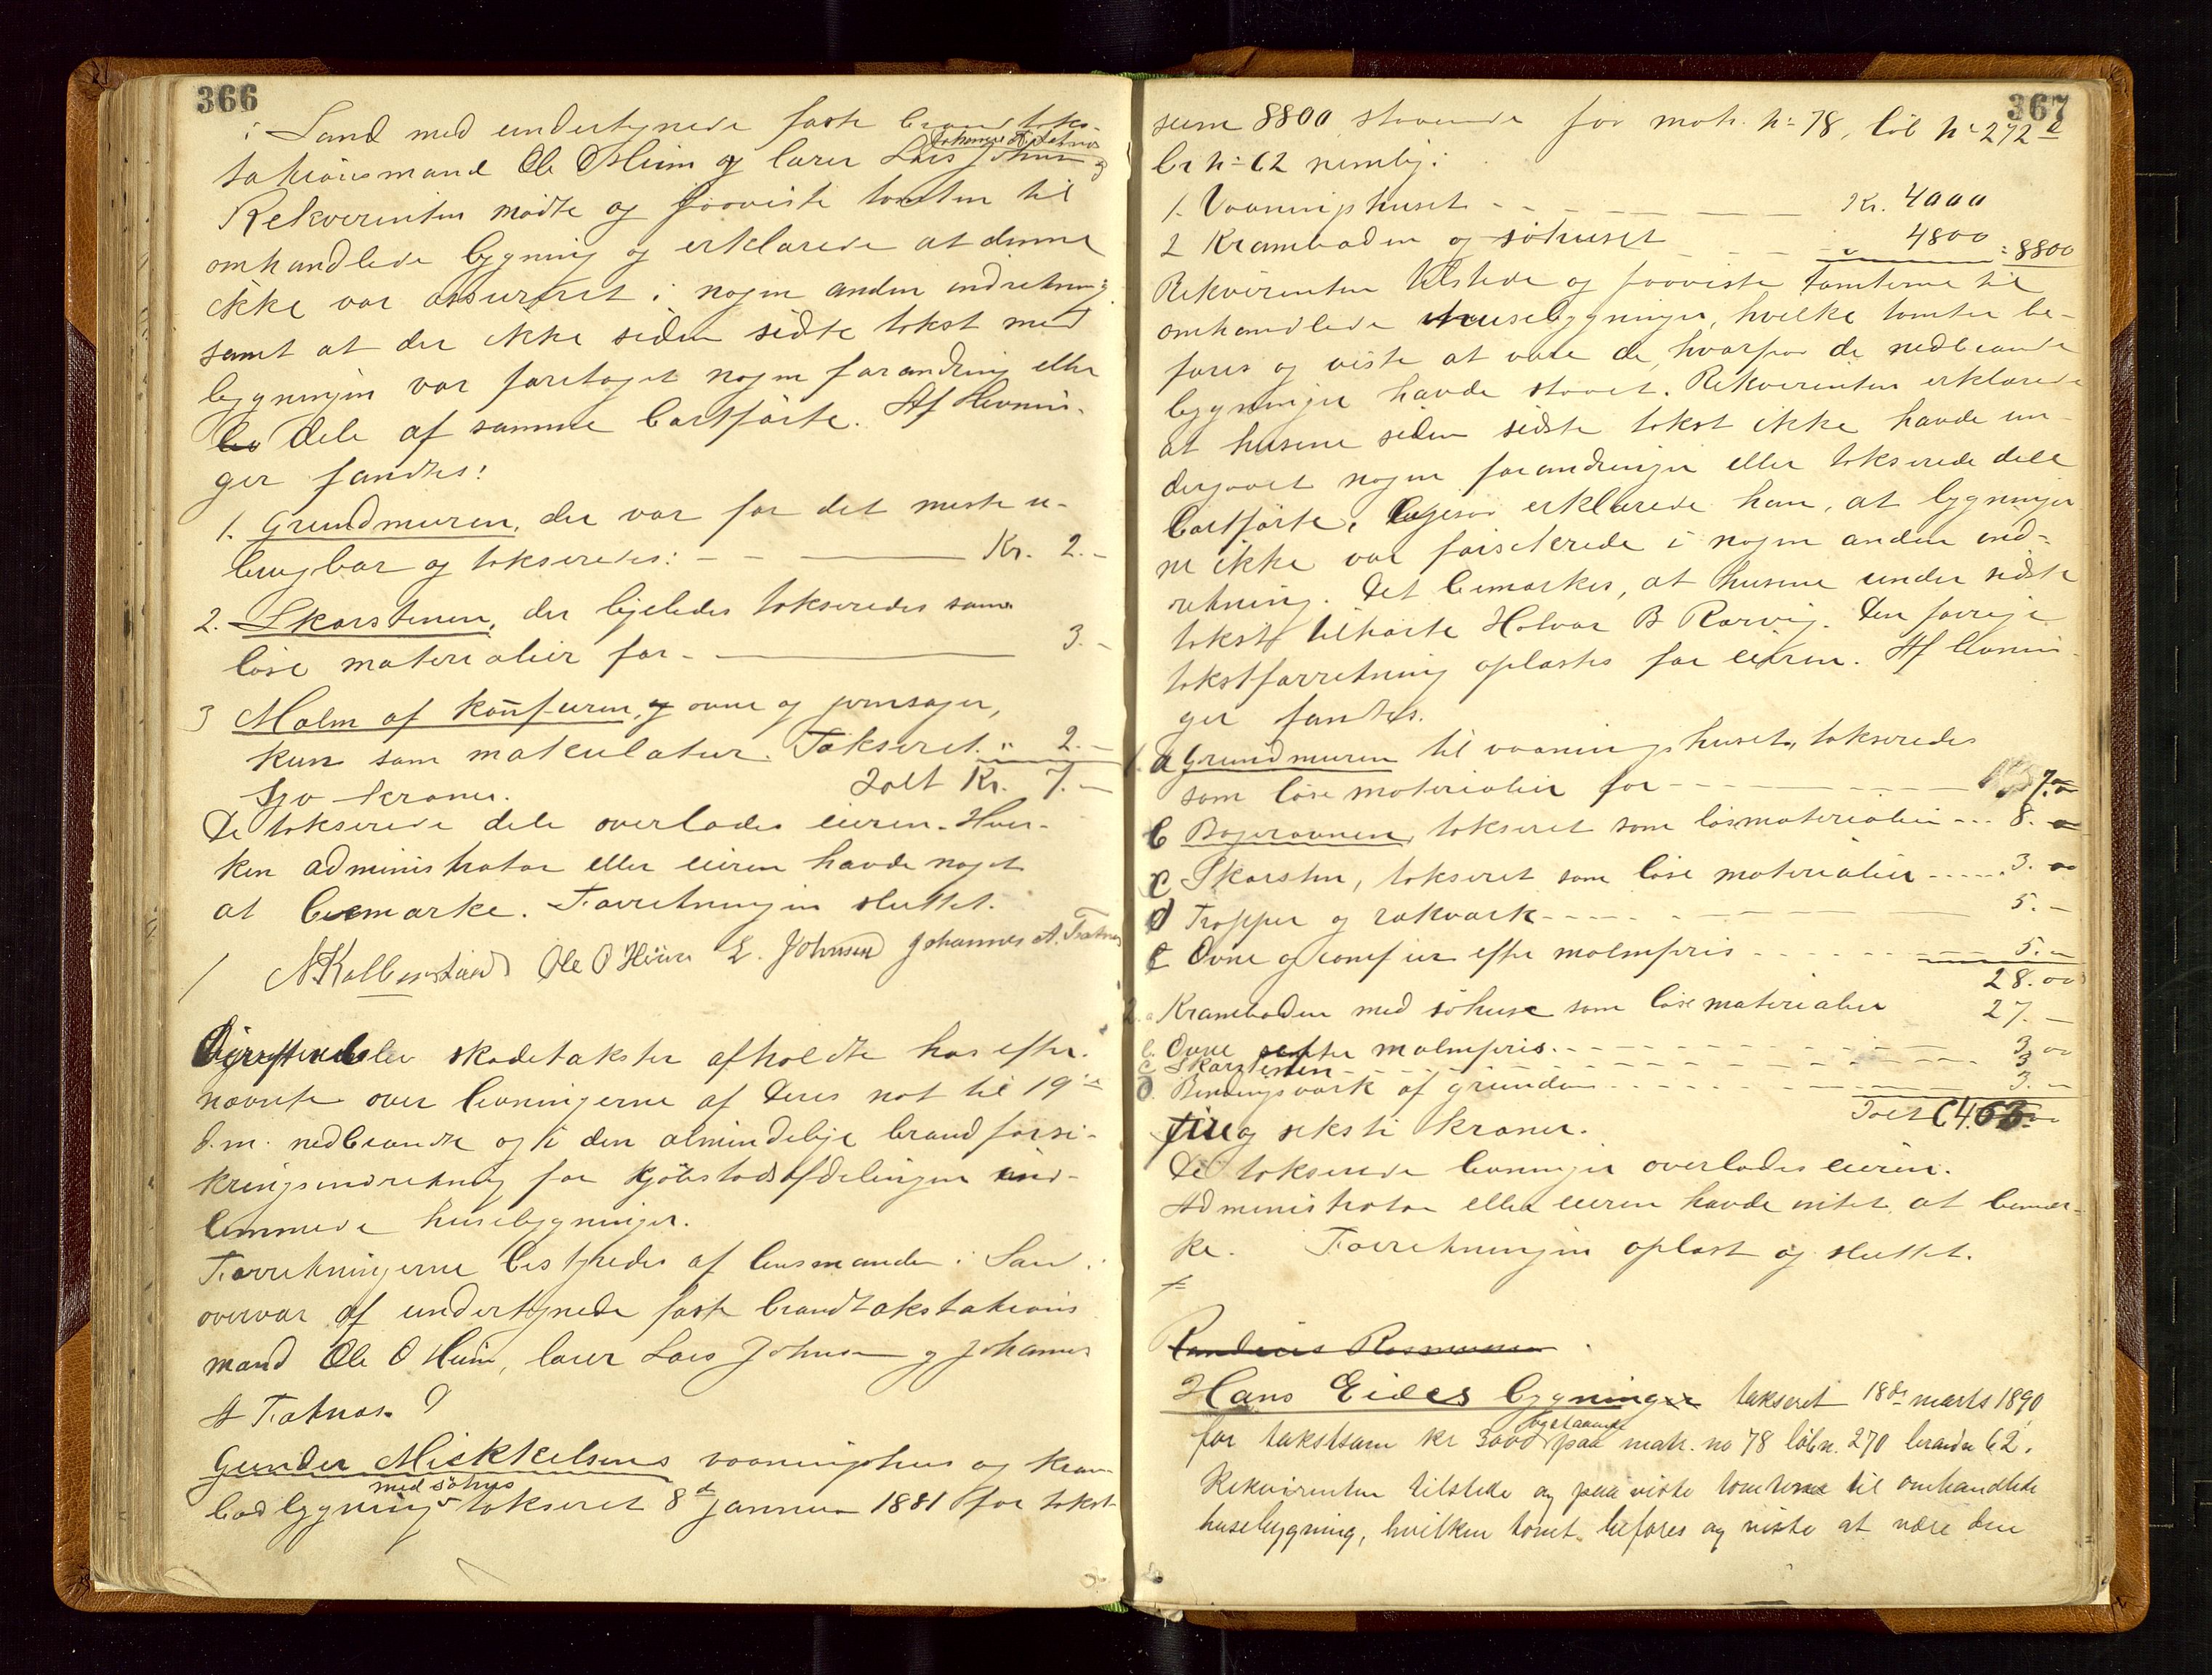 366
i Sand med undertegnede faste brandtaks-
Johannes A. Tratnæs
tationsmand Ole O Heim og lærer Lars Johnsen og
Rekvirenten mødte og paaviste tomten til
omhandlede bygning og erklærede at denne
ikke var assureret i nogen anden indretning
samt at der ikke siden sidste takst med
bygningen var foretaget nogen forandring eller
dele af samme bortførte. Af levnin-
ger fandtes:
1. Grundmuren, der var for det meste u-
brugbar og takseredes: - - — Kr. 2.-
2. Skorstenen, der ligeledes takseredes som
løse materialier for - — 3.-
3 Malm af komfuren, ovne og jernsager,
kun som makulatur. Takseret. " 2.-
Syv kroner. Ialt Kr. 7.-
De takserede dele overlades eieren. Hver-
ken administrator eller eieren havde noget
at bemærke. Forretningen sluttet.
N Kolbenstvedt Ole O Heim L. Johnsen Johannes A. Tratnæs
blev skadetakster afholdte hos efter-
nævnte over levningerne af deres nat til 19de
d.m. nedbrændte og i den almindelige brandforsi-
kringsindretning for kjøbstadsafdelingen ind-
lemmede husebygninger.
Forretningerne bestyredes af lensmanden i Sand i
overvær af undertegnede faste brandtakstations
mand Ole O Heim, lærer Lars Johnsen og Johannes
A Tratnæs.
Gunder Mickkelsens vaaningshus og kram-
med søhus
bodbygning takseret 8de januar 1881 for takst
367
sum 8800 staaende paa matr. no 78, løb no 272 d
br no 62 nemlig:
1. Vaaningshuset - - - — Kr. 4000
2 Kramboden og søhuset - - - " 4800 = 8800
Rekvirenten tilstede og paaviste tomterne til
omhandlede husebygninger, hvilke tomter be-
fares og viste at være de, hvorpaa de nedbrændte
bygninger havde staaet. Rekvirenten erklærede
at husene siden sidste takst ikke havde un-
dergaaet nogen forandringer eller takserede dele
bortførte, ligesaa erklærede han, at bygninger
ne ikke var forsikrede i nogen anden ind-
retning. Det bemærkes, at husene under sidste
takst tilhørte Halvor B Rørvig. Den forrige
takstforretning oplæstes for eieren. Af levnin-
ger fandtes.
1. a Grundmuren til vaaningshuset, takseredes
som løse materialier for - - - - 7.00
b Bagerovnen, takseret som løsmaterialier - - - 8.00
c Skorsten, takseret som løse materialier - - - - 3.00
d Trapper og rækværk - - - - 5.-
e Ovne og komfur efter malmpris - - - - 5.-
28.00
2. a Kramboden med søhuse som løse materialier 27.-
b. Ovne efter malmpris. - - - - 3.00
c Skorstenen - - - - 3
d. Bindingsværk af grunden - - - - 3.-
fire og seksti kroner. Ialt 64.00
De takserede levninger overlades eieren.
Administrator eller eieren havde intet at bemær-
ke. Forretningen oplæst og sluttet.
Rasmussen
Hans Eides bygning takseret 18de marts 1890
bestaaende
for takstsum kr 3000 paa matr. no 78 løbn. 270 brandn 62.
Rekvirenten tilstede og paaviste tomterne til omhandlede
husebygning, hvilken tomt befares og viste at være den